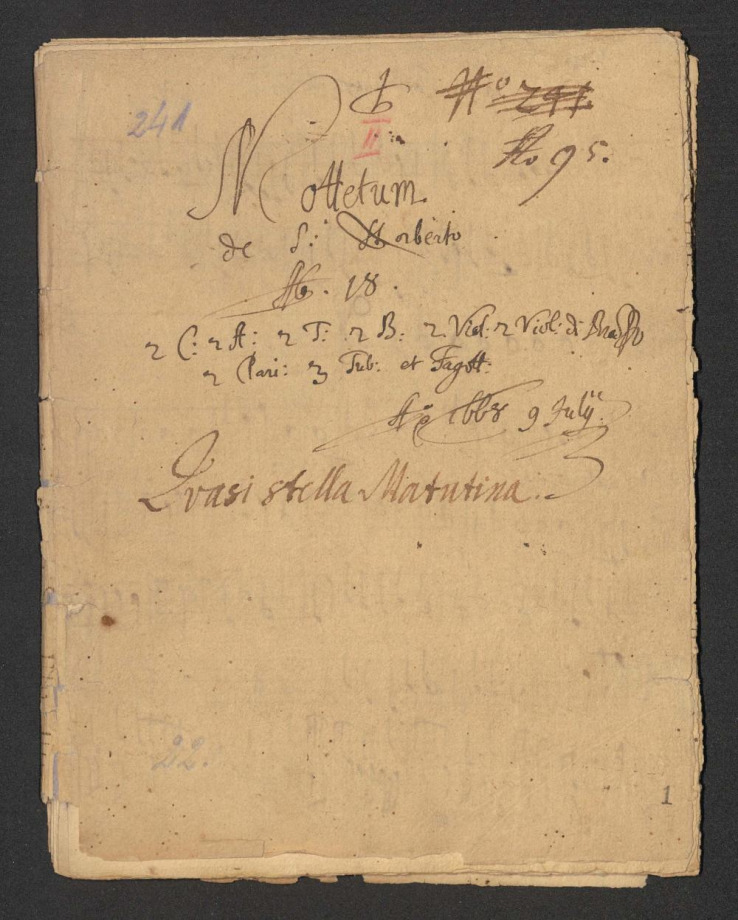 241
No 241.
II
No 95.
Mottetum
de S: Norberto
Ab. 18.
2 C: 2 A: 2 T: 2 B: 2. Viol: 2 Viol: di Brasso
2 Clari: 3 Tub: et Fagott:
Ao 1668 9 Julÿ.
Quasi stella Matutina.
22.
1